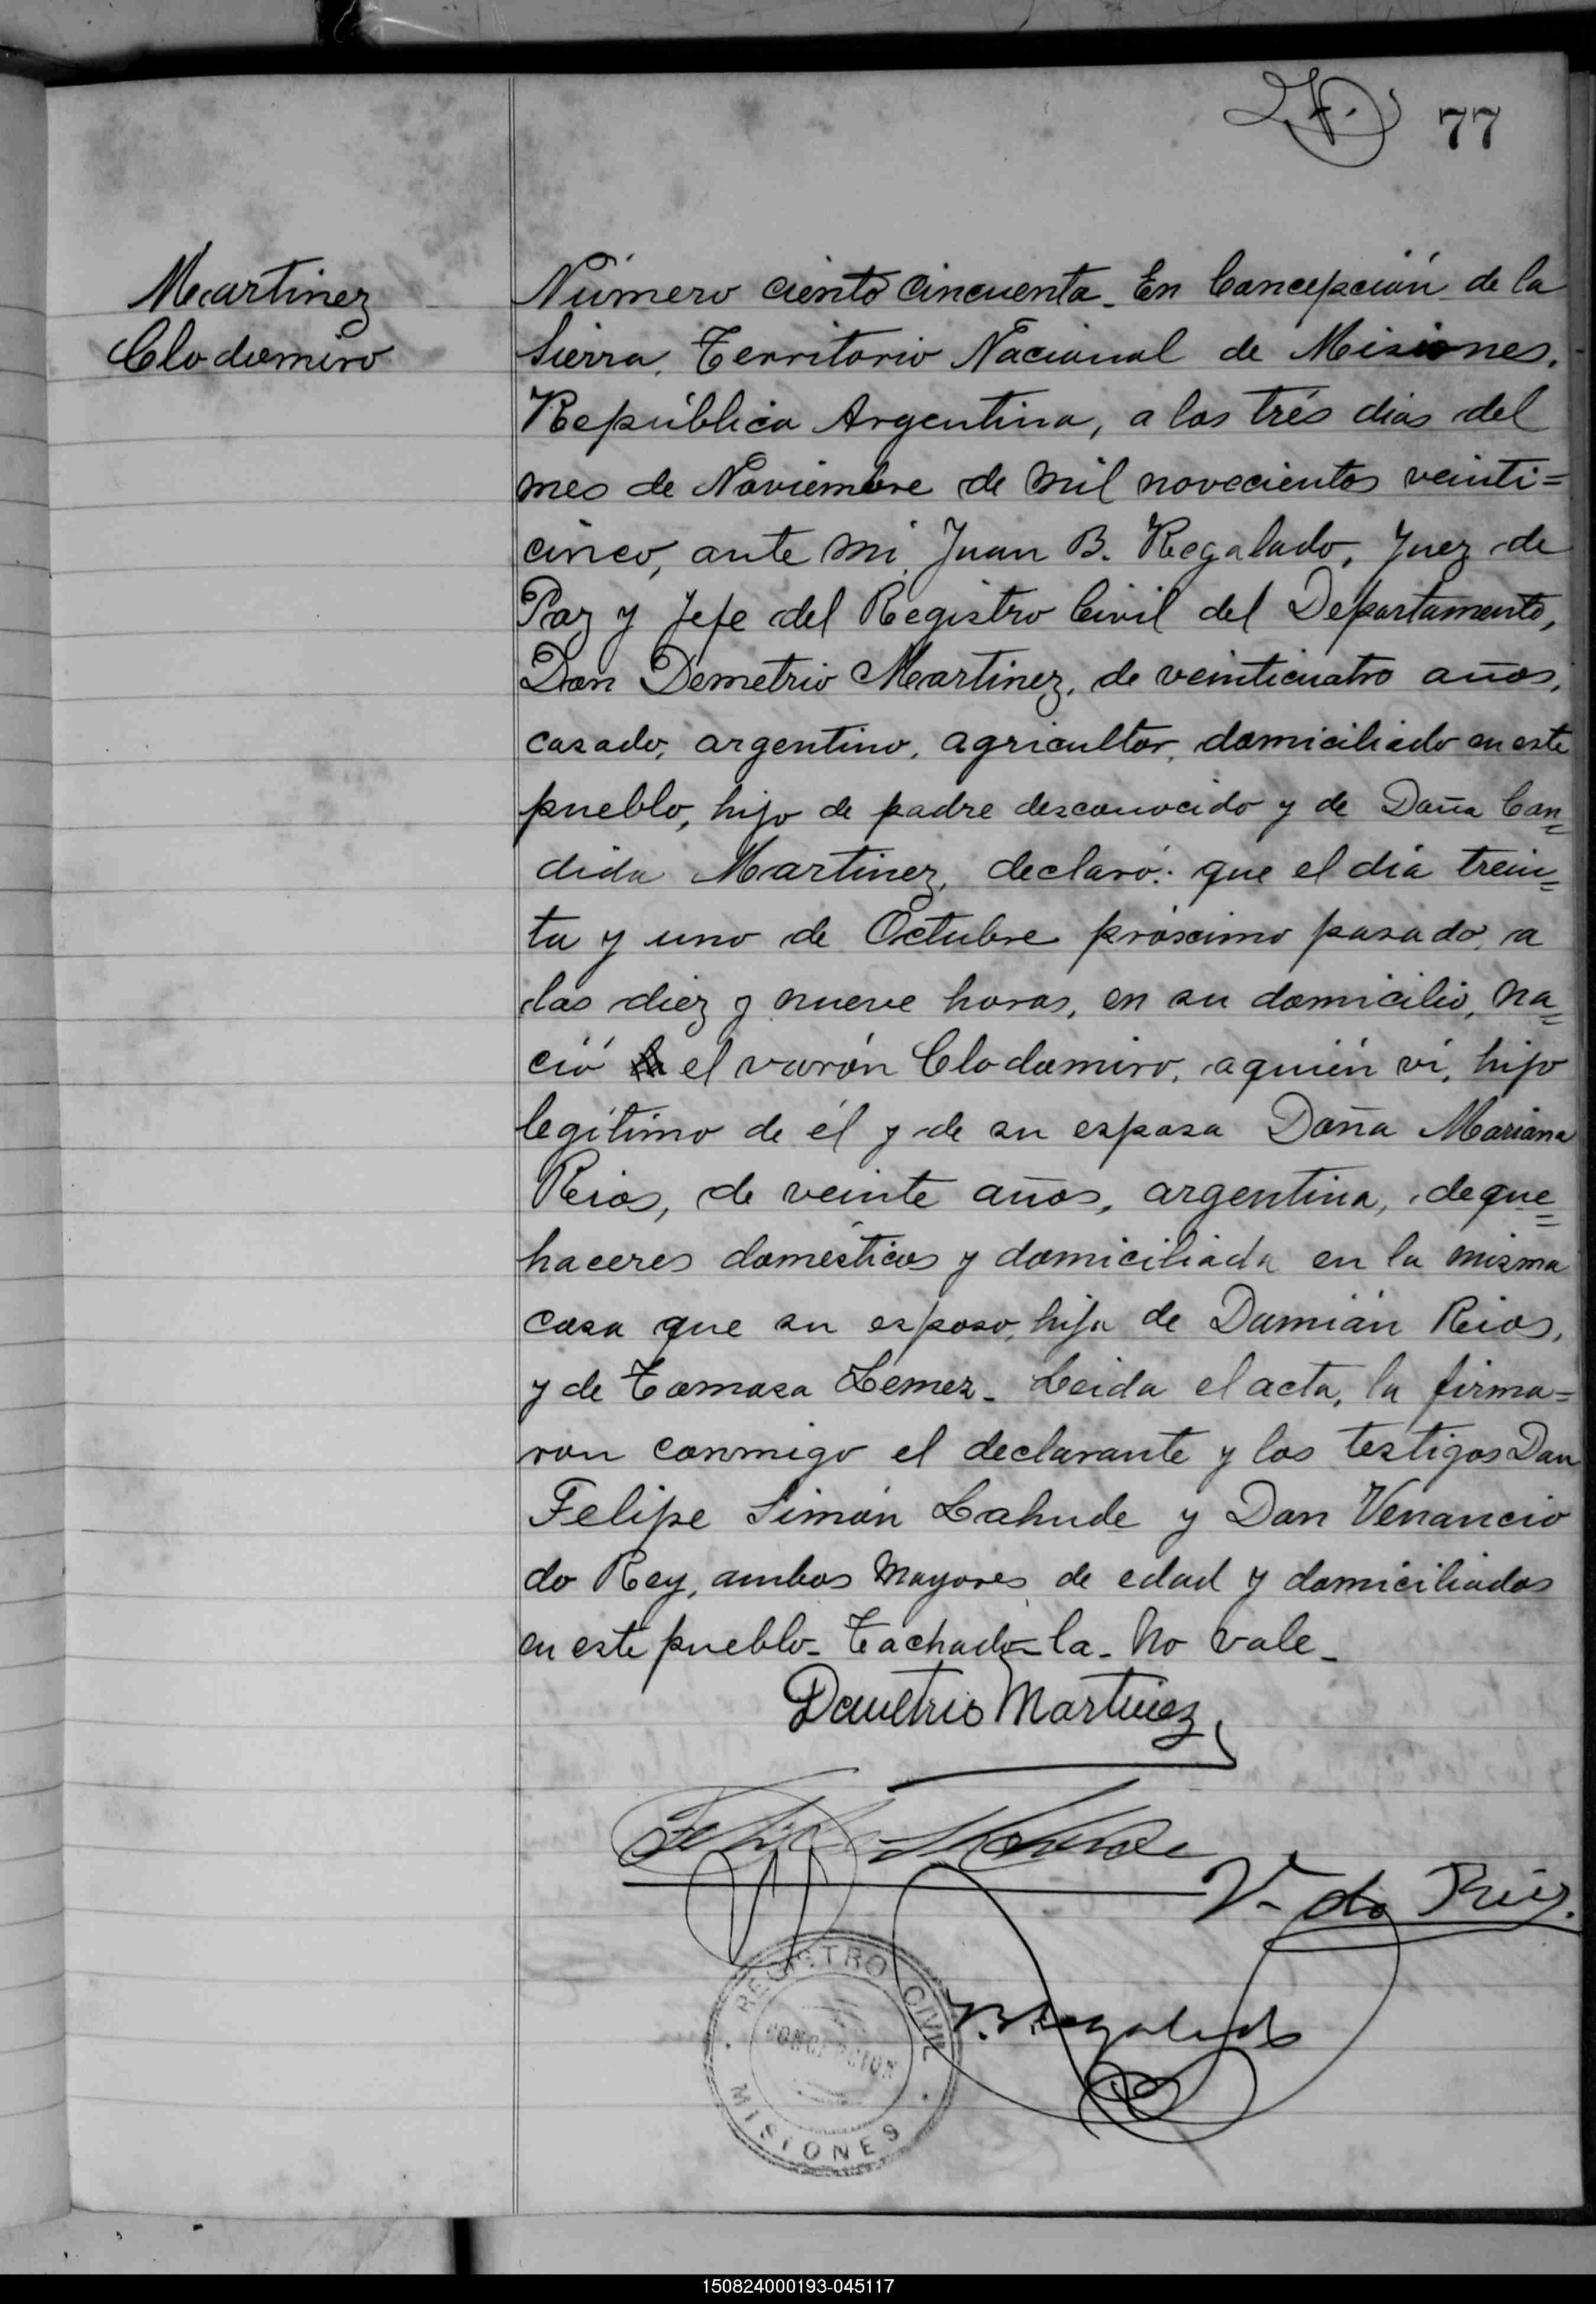 77
Martinez
Clodomiro
Número ciento cincuenta_ En Concepción de la
Sierra, Territorio Nacional de Misiones,
República Argentina, a los trés dias del
mes de Noviembre de mil novecientos veinti=
cinco, ante mi, Juan B. Regalado, Juez de
Paz y Jefe del Registro Civil del Departamento,
Don Demetrio Martinez, de veinticuatro años,
casado, argentino, agricultor, domiciliado en este
pueblo, hijo de padre desconocido y de Doña Can=
dida Martinez, declaró: que el dia trein=
ta y uno de Octubre próximo pasado, a
las diez y nueve horas, en su domicilio, na=
ció la el varón Clodomiro, a quién ví, hijo
legítimo de él y de su esposa Doña Mariana
Rios, de veinte años, argentina, de que=
haceres domésticos y domiciliada en la misma
casa que su esposo, hija de Damián Rios,
y de Tomasa Lemez_ Leida el acta, la firma=
ron conmigo el declarante y los testigos Don
Felipe Simón Lahude y Don Venancio
do Rey, ambos mayores de edad y domiciliados
en este pueblo_ Tachado_la_ No vale_
Demetrio Martinez
V. do Rey.
J. B. Regalado
REGISTRO CIVIL
CONCEPCION
MISIONES
150824000193-045117